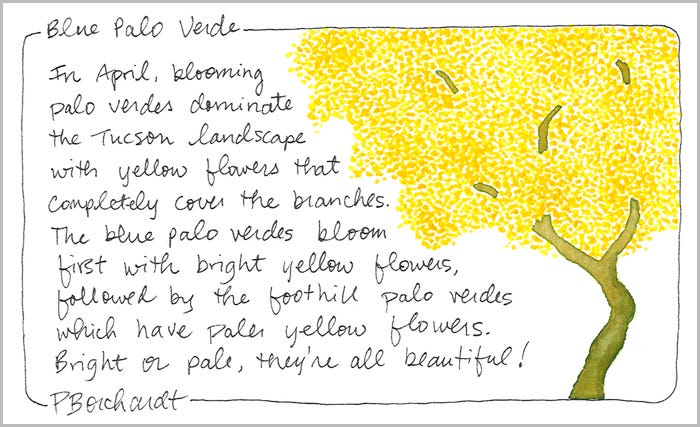 Blue Palo Verde
In April, blooming
palo verdes dominate
the Tucson landscape
with yellow flowers that
completely cover the branches.
The blue palo verdes bloom
first with bright yellow flowers,
followed by the foothill palo verdes
which have paler yellow flowers.
Bright or pale, they're all beautiful!
PBorchardt